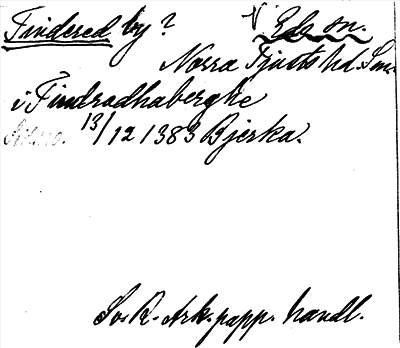 Tindered by? V Eds sn.
Norra Tjusts hd. Sm.
i Tindradhaberghe
13/12 1383 Bjerka.
Sv. R.-Ark. papp. handl.